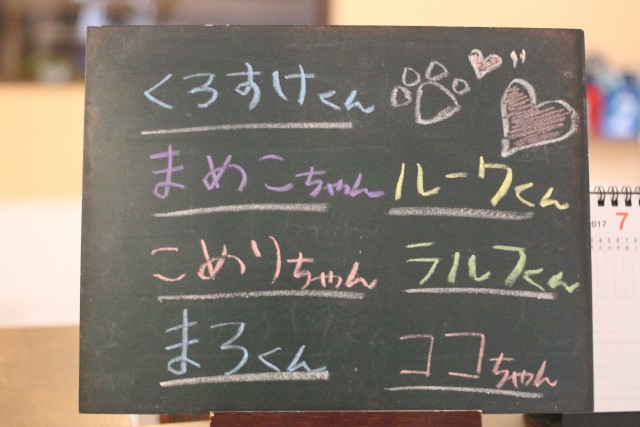 くろすけくん
まめこちゃん
こめりちゃん
まろくん
ルークくん
ラルフくん
ココちゃん
2017 7